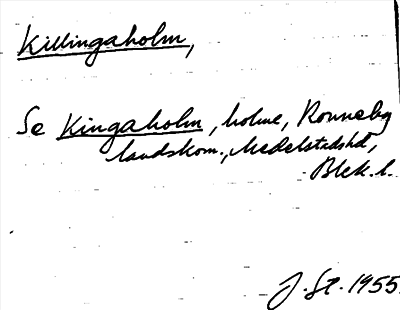 Killingaholm,
Se Kingaholm, holme, Ronneby
landskom., Medelstadshd,
Blek. l.
J. St. 1955.